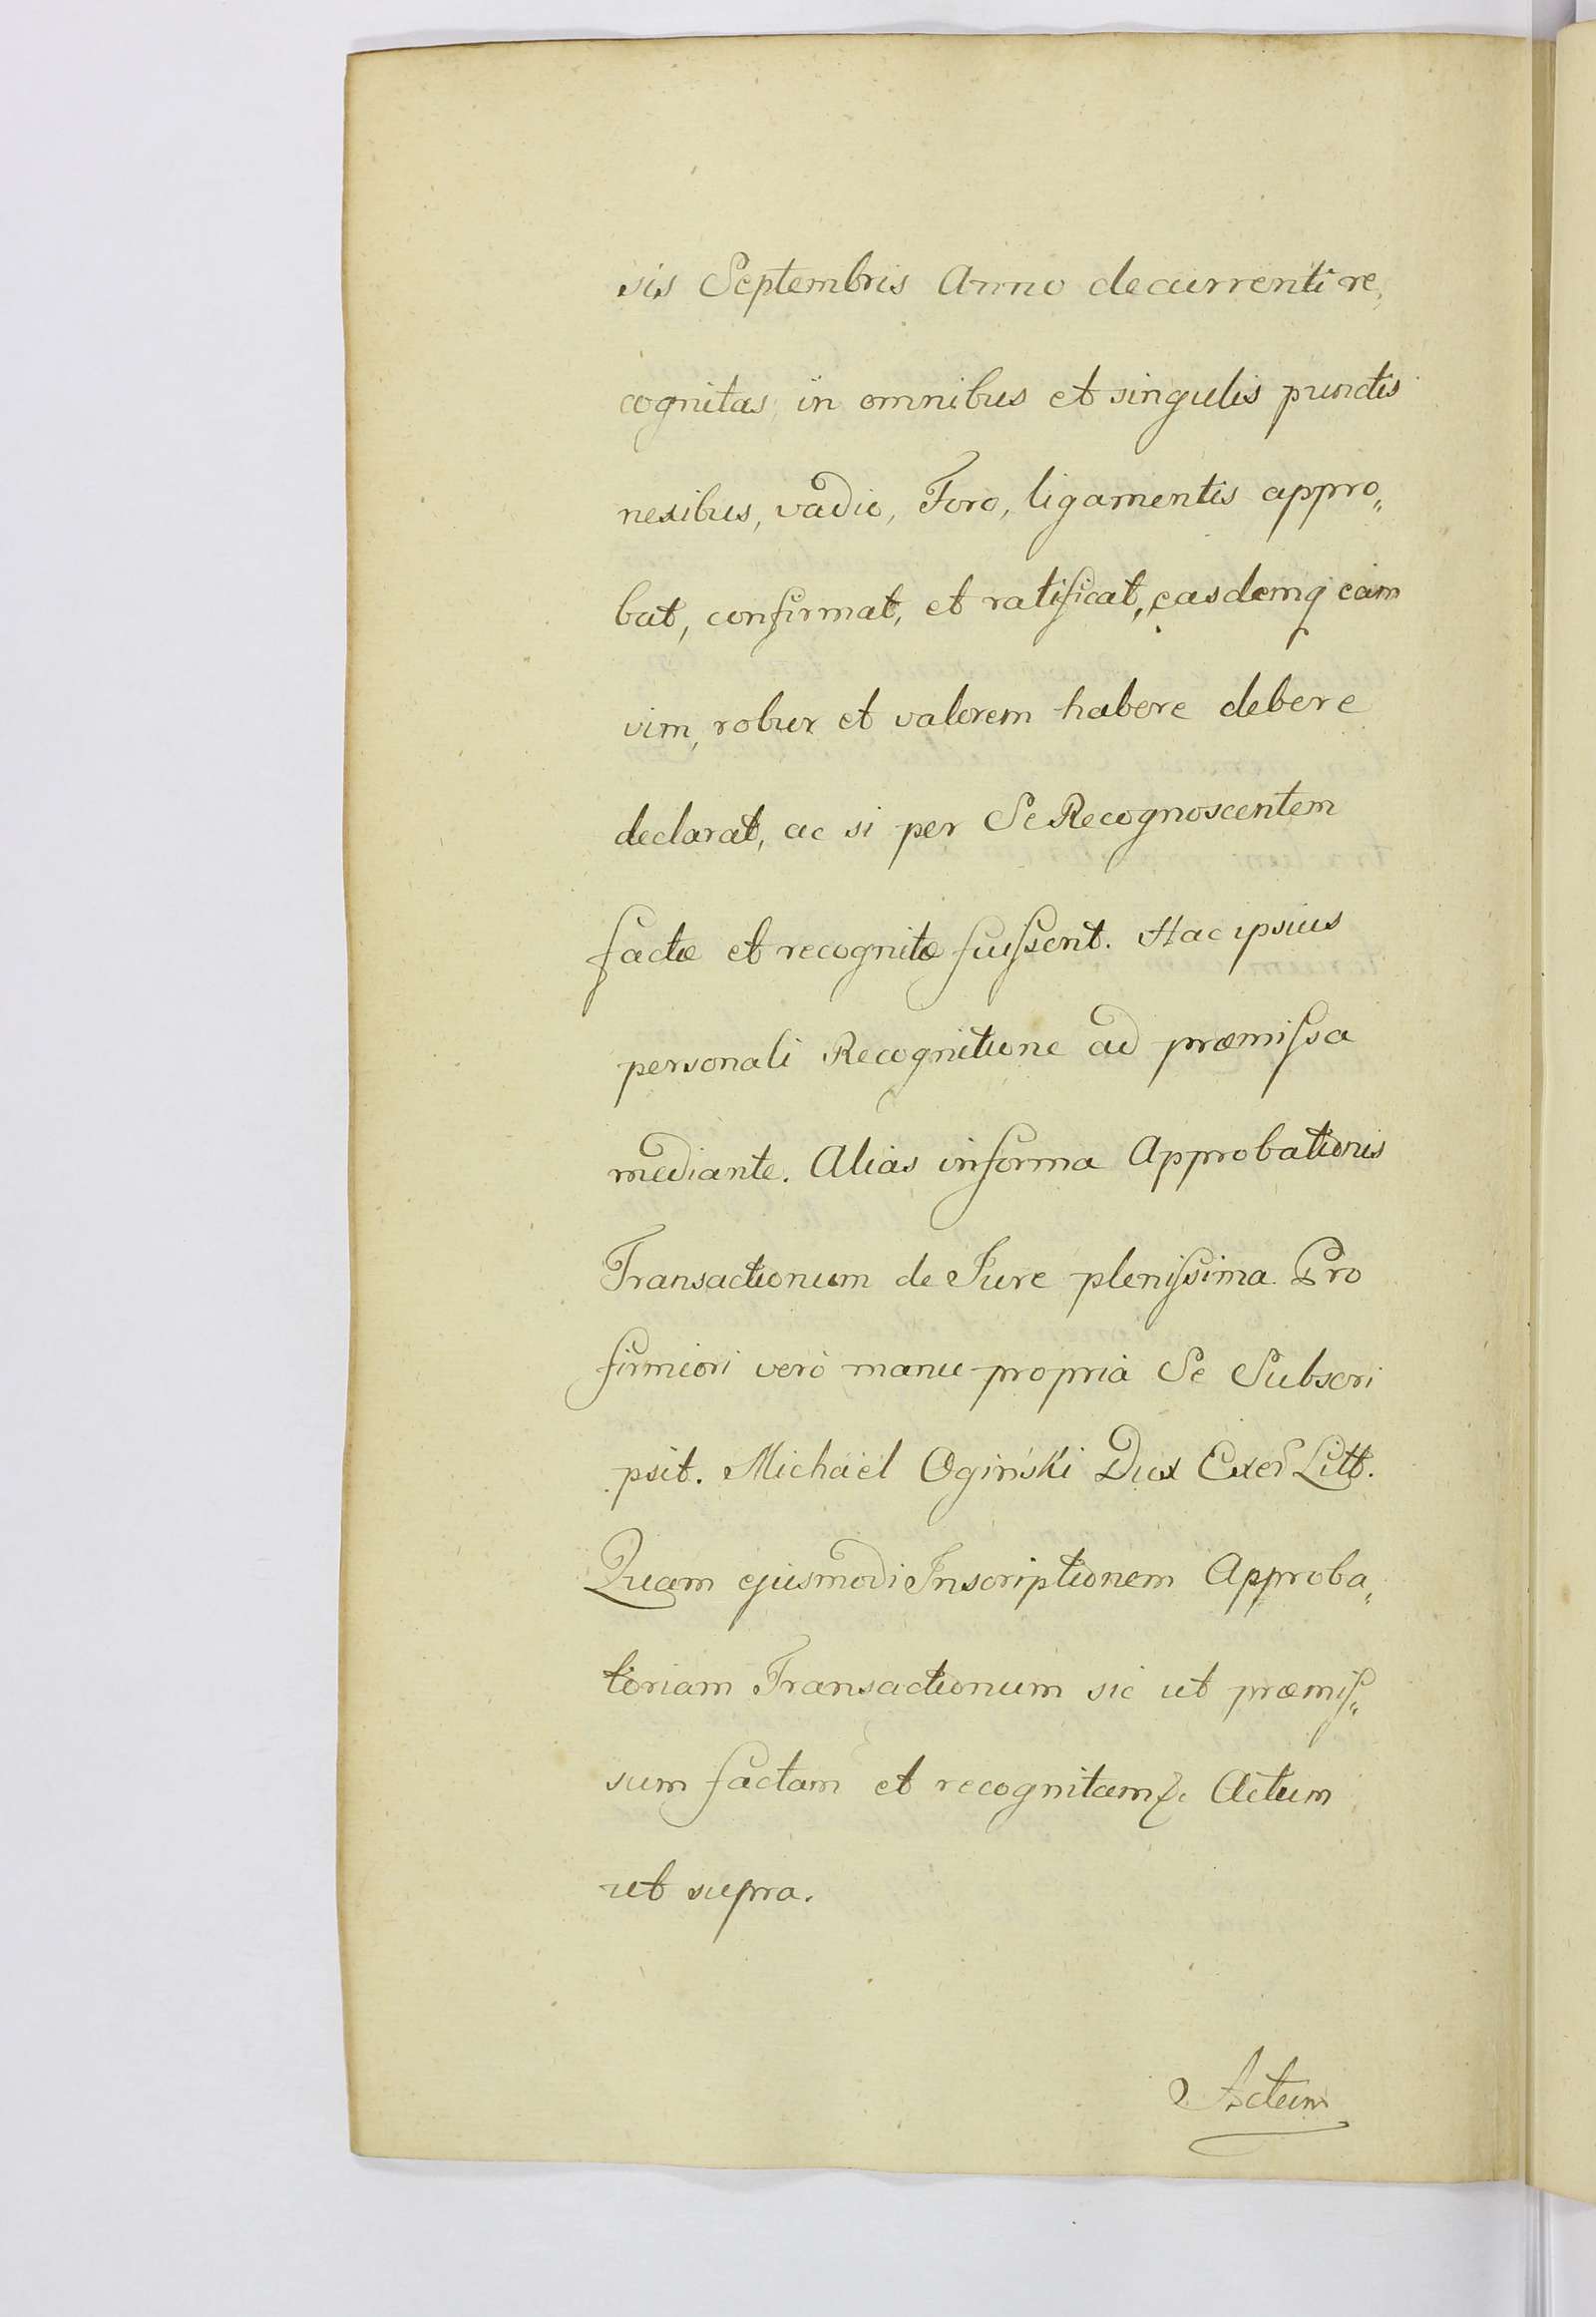 sis Septembris Anno decurrenti re„
cognitas in omnibus et singulis punctis
nexibus, vadio, Foro, ligamentis appro„
bat, confirmat, et ratificat, easdemq eam
vim, robur et valorem habere debere
declarat, ac si per Se Recognoscentem
factæ et recognitæ fuiſsent. Hac ipsius
personali Recognitione ad præmiſsa
mediante. Alias in forma Approbationis
Transactionum de Jure pleniſsima. Pro
firmiori verò manu propria Se Subscri
psit. Michaël Ogiński Dux Exer Litt.
Quam ejusmodi Inscriptionem Approba„
toriam Transactionum sic ut præmiſ„
sum factam et recognitam &c Actum
ut supra.
Actum